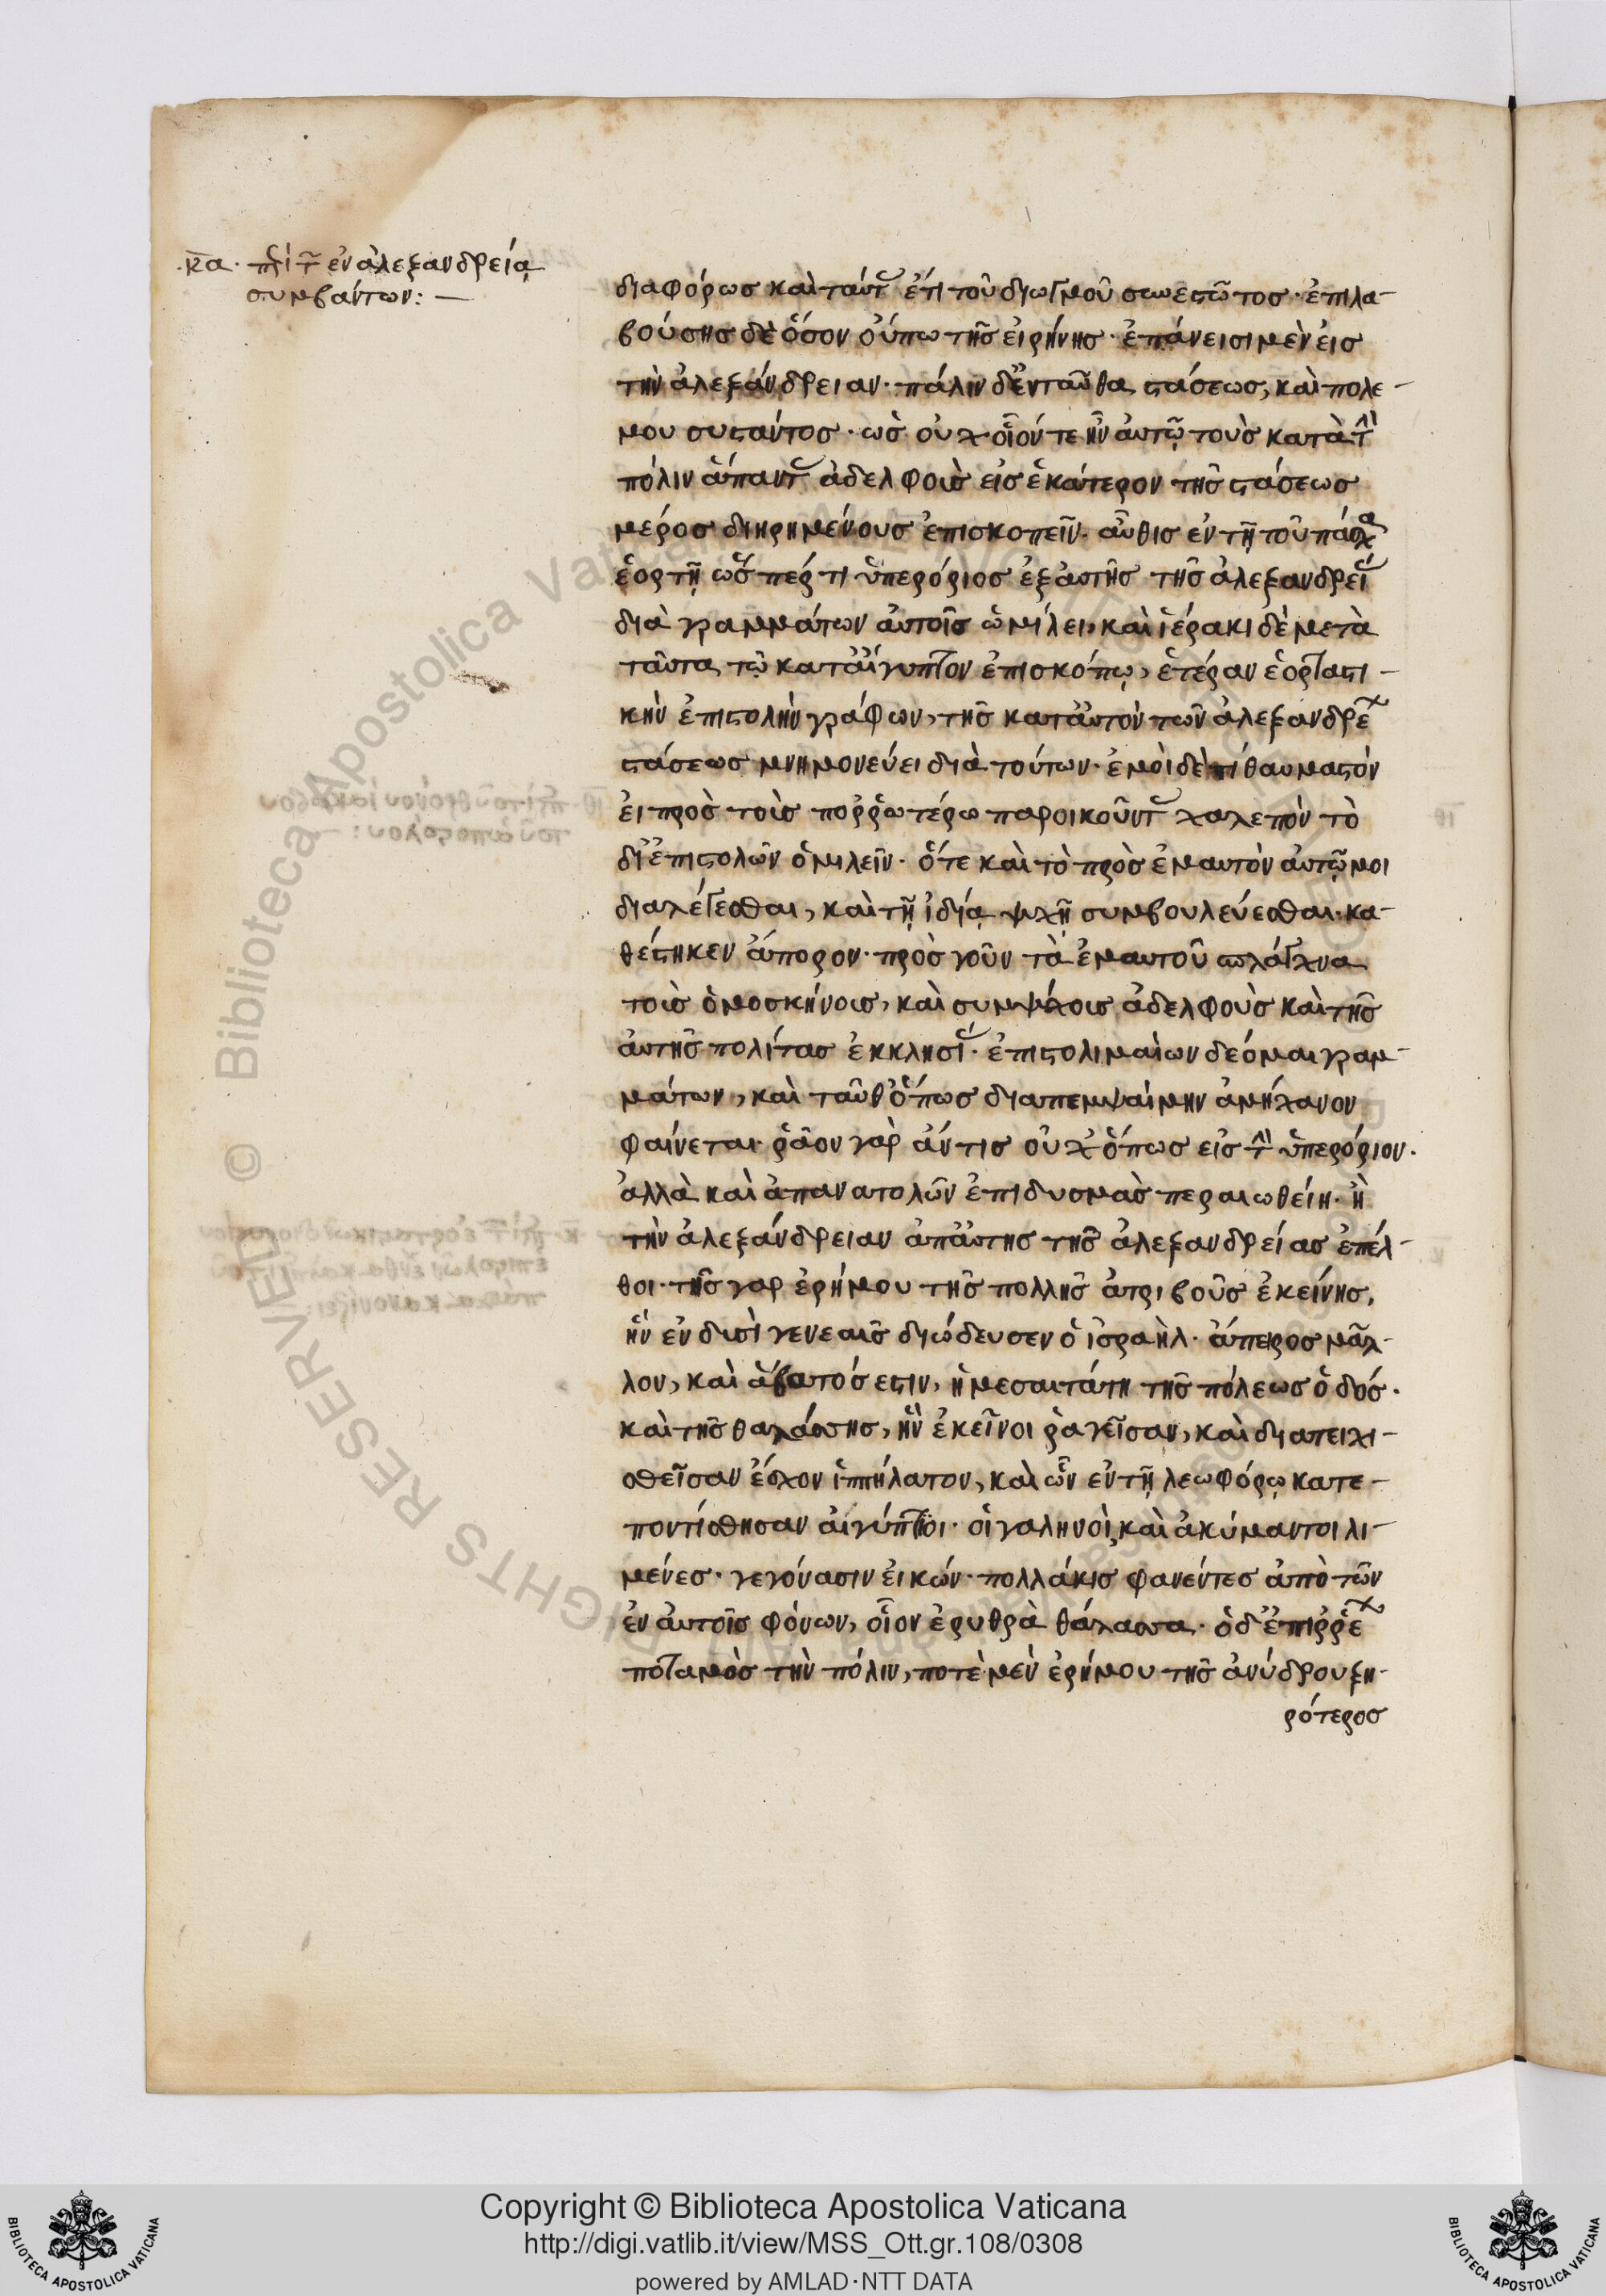 .κα. περὶ τῶν ἐν ἀλεξανδρείᾳ
συμβάντων: —
διαφόρως καὶ ταύτας ἔτι τοῦ διωγμοῦ συνεστῶτος· ἐπιλα-
βούσης δὲ ὅσον οὔπω τῆς εἰρήνης· ἐπάνεισι μὲν εἰς
τὴν ἀλεξάνδρειαν· πάλιν δ' ἐνταῦθα στάσεως, καὶ πολε-
μου συστάντος· ὡς οὐχ οἷόν τε ἦν αὐτῷ τοὺς κατὰ τὴν
πόλιν ἅπαντας ἀδελφοὺς εἰς ἑκάτερον τῆς στάσεως
μέρος διῃρημένους ἐπισκοπεῖν· αὖθις ἐν τῇ τοῦ πάσχα
ἑορτῇ ὥσπέρ τι ὑπερόριος ἐξ αὐτῆς τῆς ἀλεξανδρείας
διὰ γραμμάτων αὐτοῖς ὡμίλει, καὶ ἱέρακι δὲ μετὰ
ταῦτα τῷ κατ' αἴγυπτον ἐπισκόπῳ, ἑτέραν ἑορταστι-
κὴν ἐπιστολὴν γράφων, τῆς κατ' αὐτὸν τῶν ἀλεξανδρέων
στάσεως μνημονεύει διὰ τούτων· ἐμοὶ δὲ τί θαυμαστὸν
εἰ πρὸς τοὺς πορρωτέρω παροικοῦντας χαλεπὸν τὸ
δι' ἐπιστολῶν ὁμιλεῖν· ὅτε καὶ τὸ πρὸς ἐμαυτὸν αὐτῷ μοι
διαλέγεσθαι, καὶ τῇ ἰδίᾳ ψχῇ συμβουλεύεσθαι· κα-
θέστηκεν ἄπορον· πρὸς γοῦν τὰ ἐμαυτοῦ σπλάγχνα
τοὺς ὁμοσκήνους, καὶ συμψύχους ἀδελφοὺς καὶ τῆς
αὐτῆς πολίτας ἐκκλησίας· ἐπιστολιμαίων δέομαι γραμ-
μάτων, καὶ ταῦθ' ὅπως διαπεμψαίμην ἀμήχανον
φαίνεται· ῥᾶον γὰρ ἄν τις οὐχ ὅπως εἰς τὴν ὑπερόριον·
ἀλλὰ καὶ ἀπ' ἀνατολῶν ἐπὶ δυσμὰς περαιωθείη· ἢ
τὴν ἀλεξάνδρειαν ἀπ' αὐτῆς τῆς ἀλεξανδρείας ἐπέλ-
θοι· τῆς γὰρ ἐρήμου τῆς πολλῆς ἀτριβοῦς ἐκείνης,
ἣν ἐν δυσὶ γενεαῖς διώδευσεν ὁ ἰσραὴλ· ἄπειρος μᾶλ-
λον, καὶ ἄβατός ἐστιν, ἡ μεσαιτάτη τῆς πόλεως ὁδός·
καὶ τῆς θαλάσσης, ἣν ἐκεῖνοι ῥαγεῖσαν, καὶ διατειχι-
σθεῖσαν ἔσχον ἱππήλατον, καὶ ὧν ἐν τῇ λεωφόρῳ κατε-
ποντίσθησαν αἰγύπτιοι· οἱ γαληνοὶ καὶ ἀκύμαντοι λι-
μένες· γεγόνασιν εἰκών· πολλάκις φανέντες ἀπὸ τῶν
ἐν αὐτοῖς φόνων, οἷον ἐρυθρὰ θάλασσα· ὁ δ' ἐπιρρέων
ποταμὸς τὴν πόλιν, ποτὲ μὲν ἐρήμου τῆς ἀνύδρου ξη-
ρότερος
Copyright © Biblioteca Apostolica Vaticana
http://digi.vatlib.it/view/MSS_Ott.gr.108/0308
powered by AMLAD·NTT DATA